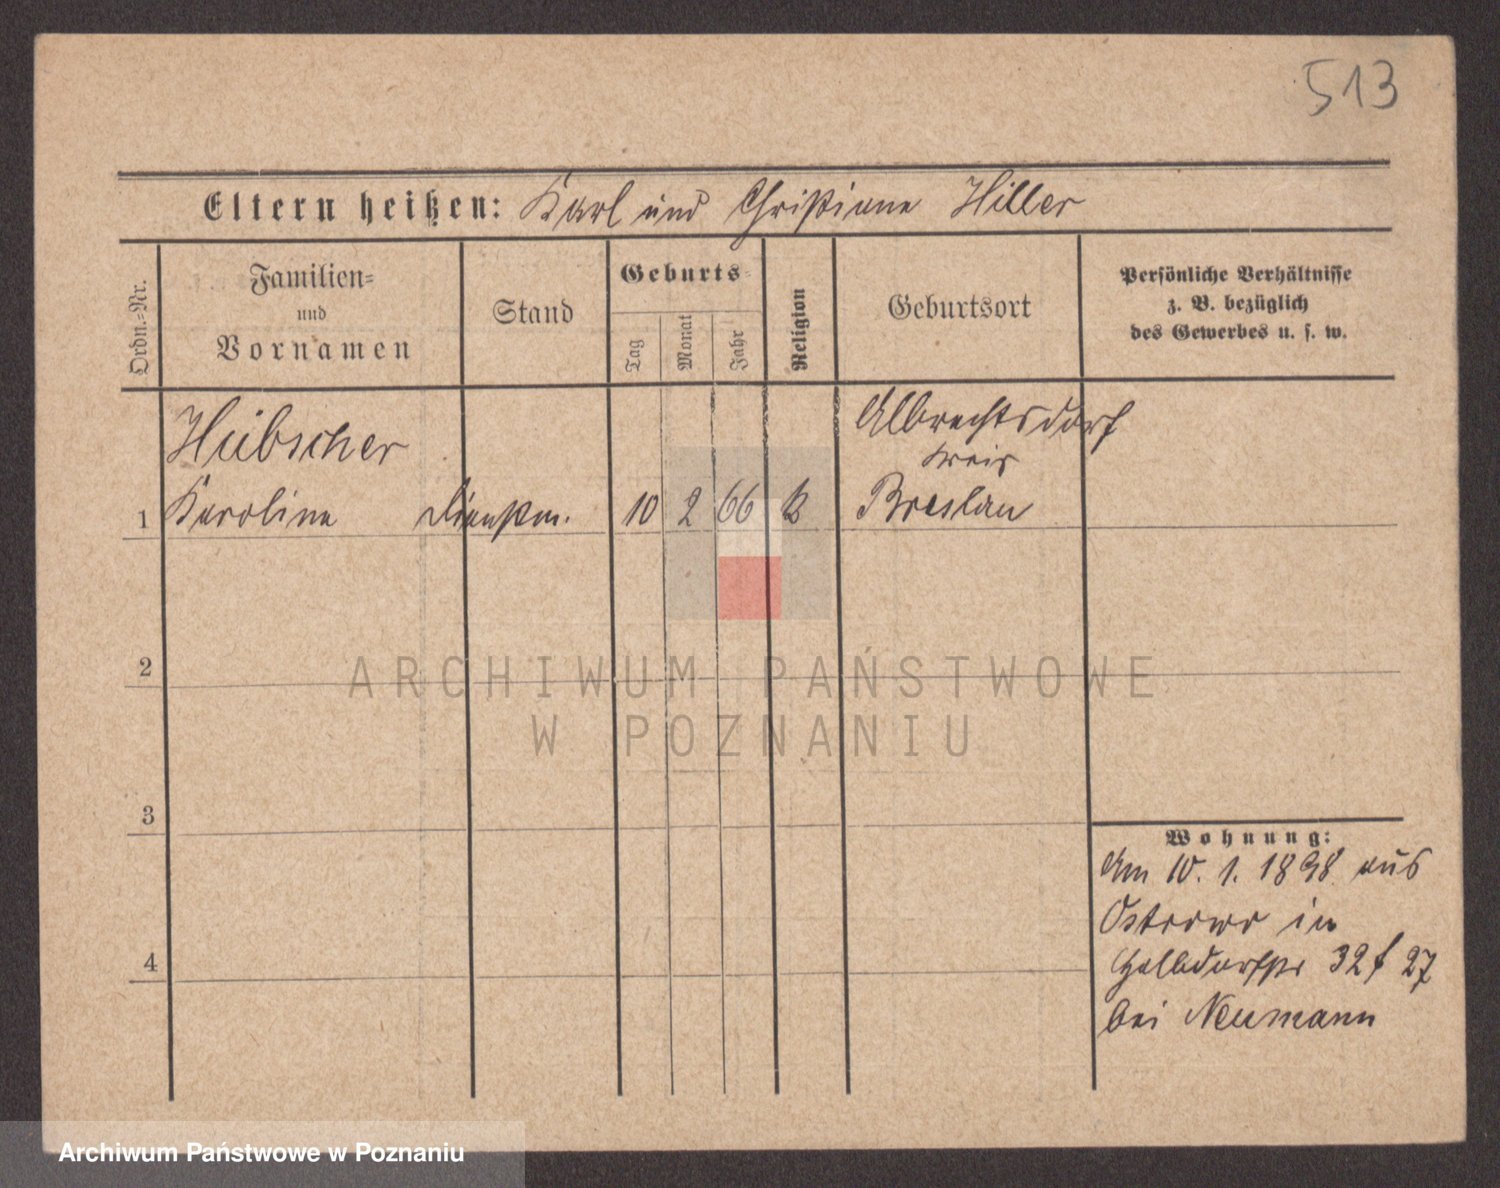 513
Eltern heißen: Karl und Christiane Hiller
Ordn.-Nr.
Familien-
und
Vornamen
Stand
Geburts-
Tag
Monat
Jahr
Religion
Geburtsort
Persönliche Verhältnisse
z. B. bezüglich
des Gewerbes u. s. w.
Hübscher
Albrechtsdorf
Kreis
1 Karoline Dienstm. 10 2 66 Breslau
2
3
4
Wohnung:
Am 10. 1. 1898 aus
Ostrowo in
Halbdorfstr 32 f 27
bei Neumann
ARCHIWUM PAŃSTWOWE
W POZNANIU
Archiwum Państwowe w Poznaniu